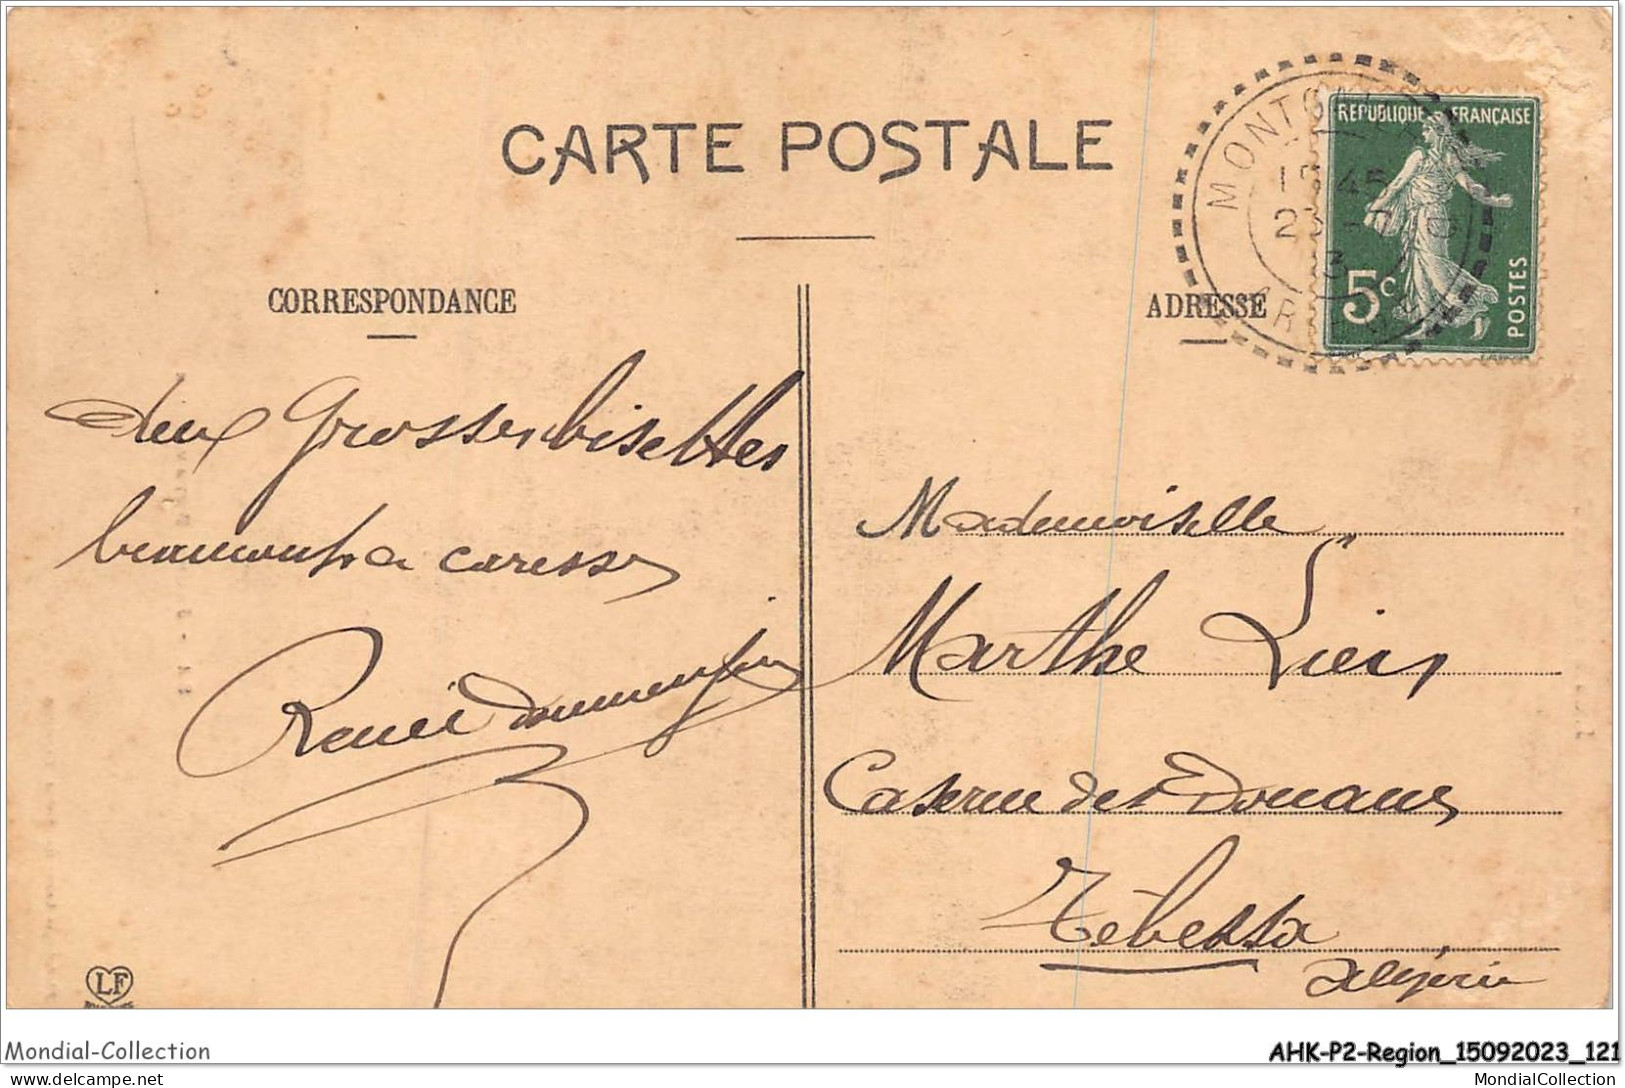 CARTE POSTALE
CORRESPONDANCE
ADRESSE
REPUBLIQUE FRANÇAISE
5c
POSTES
deux Grosses bisettes
beaucoup de caresses
Renée
Mademoiselle
Marthe
Caserne des Douanes
Tébessa
Algérie
LF
Mondial-Collection
AHK-P2-Region_15092023_121
delcampe.net
MondialCollection